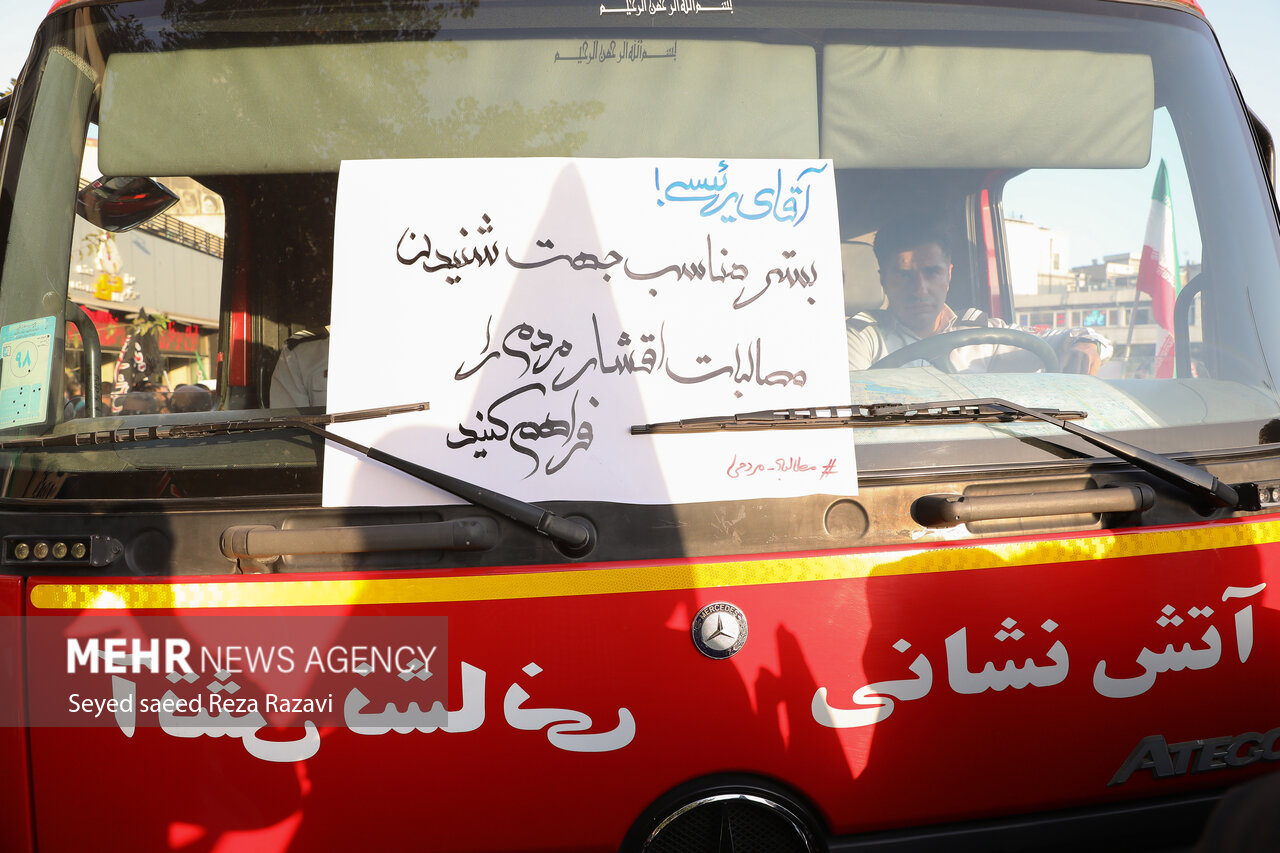 بسم الله الرحمن الرحیم
بسم الله الرحمن الرحیم
آقای رئیسی!
بستر مناسب جهت شنیدن
مطالبات اقشار مردم را
فراهم کنید
#مطالبه_مردمی
۹۸
MERCEDES
آتش نشانی
آتش نشانی
ATEGO
MEHR NEWS AGENCY
Seyed saeed Reza Razavi